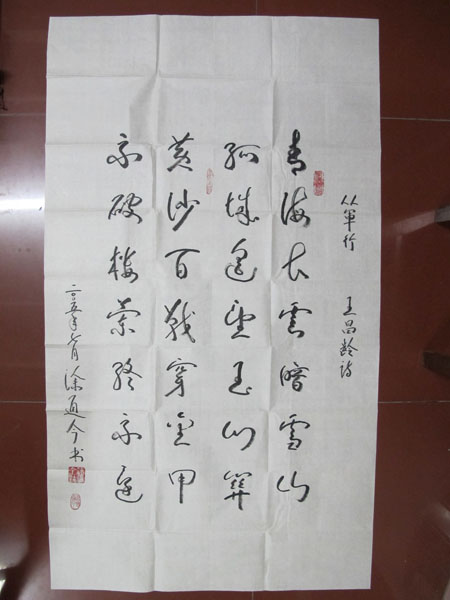 从军行 王昌龄诗
青海长雲暗雪山
孤城遥望玉门关
黄沙百战穿金甲
不破楼兰终不还
涂通今书